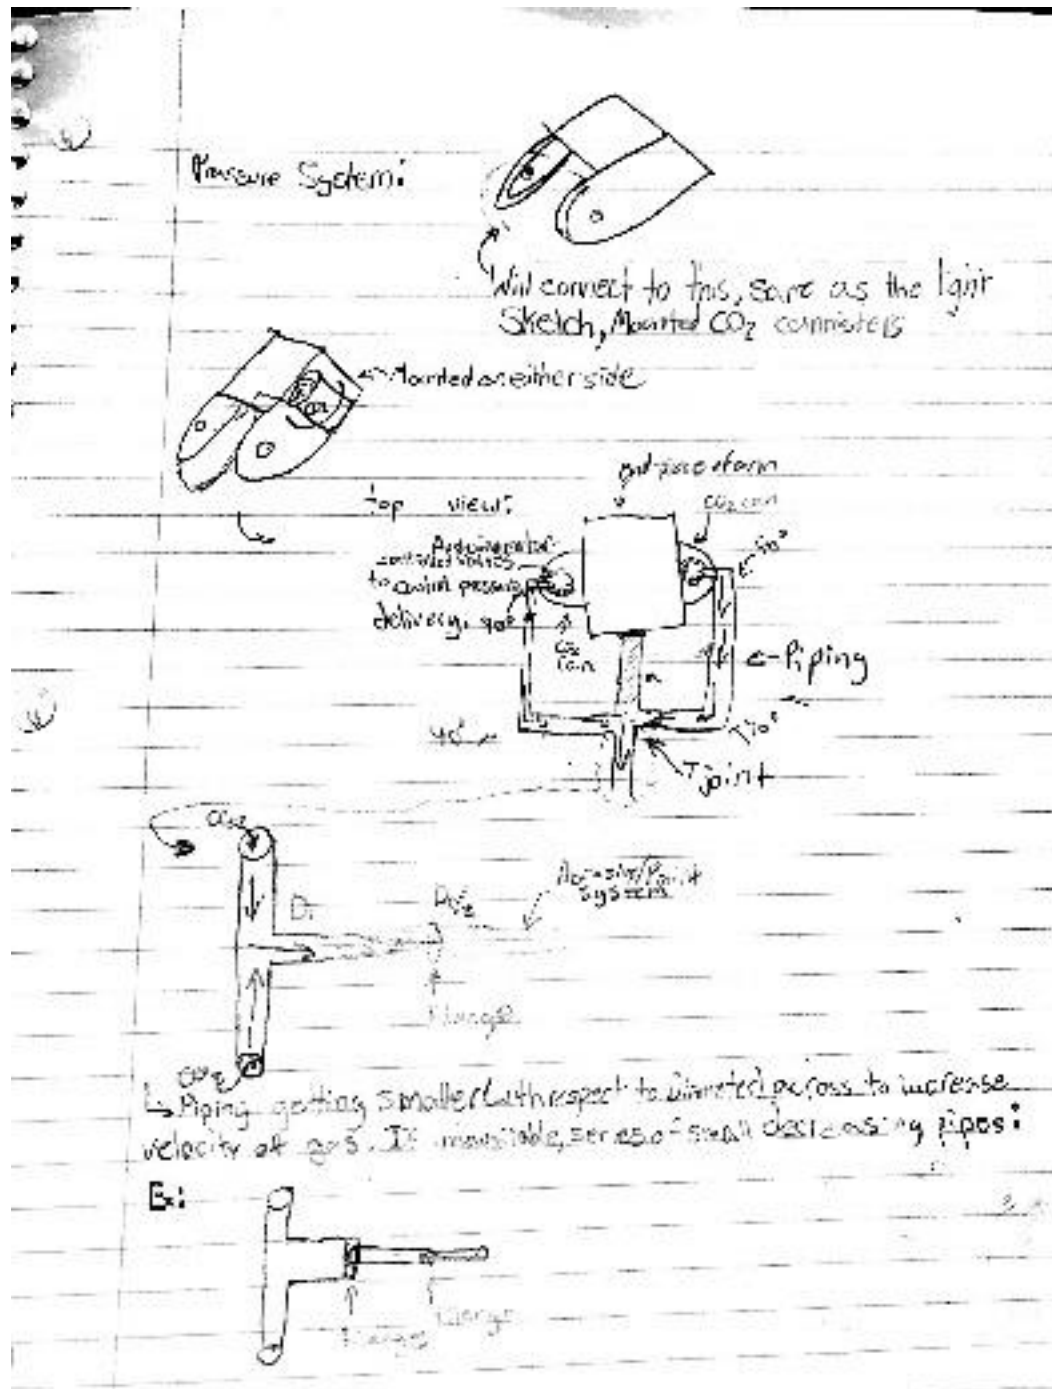 Pressure System:
Will connect to this, same as the light
Sketch, Mounted CO2 cannisters
Mounted on either side
end piece of arm
top view:
CO2 can
controlled valves
to control pressure
delivery.
90°
90°
CO2
can
Piping
90°
T joint
CO2
D1
Abrasive/Paint
System
Flange
CO2
Piping getting smaller (with respect to diameter) across to increase
velocity of gas. If unavailable, series of small decreasing pipes:
Ex:
Flange
Flange